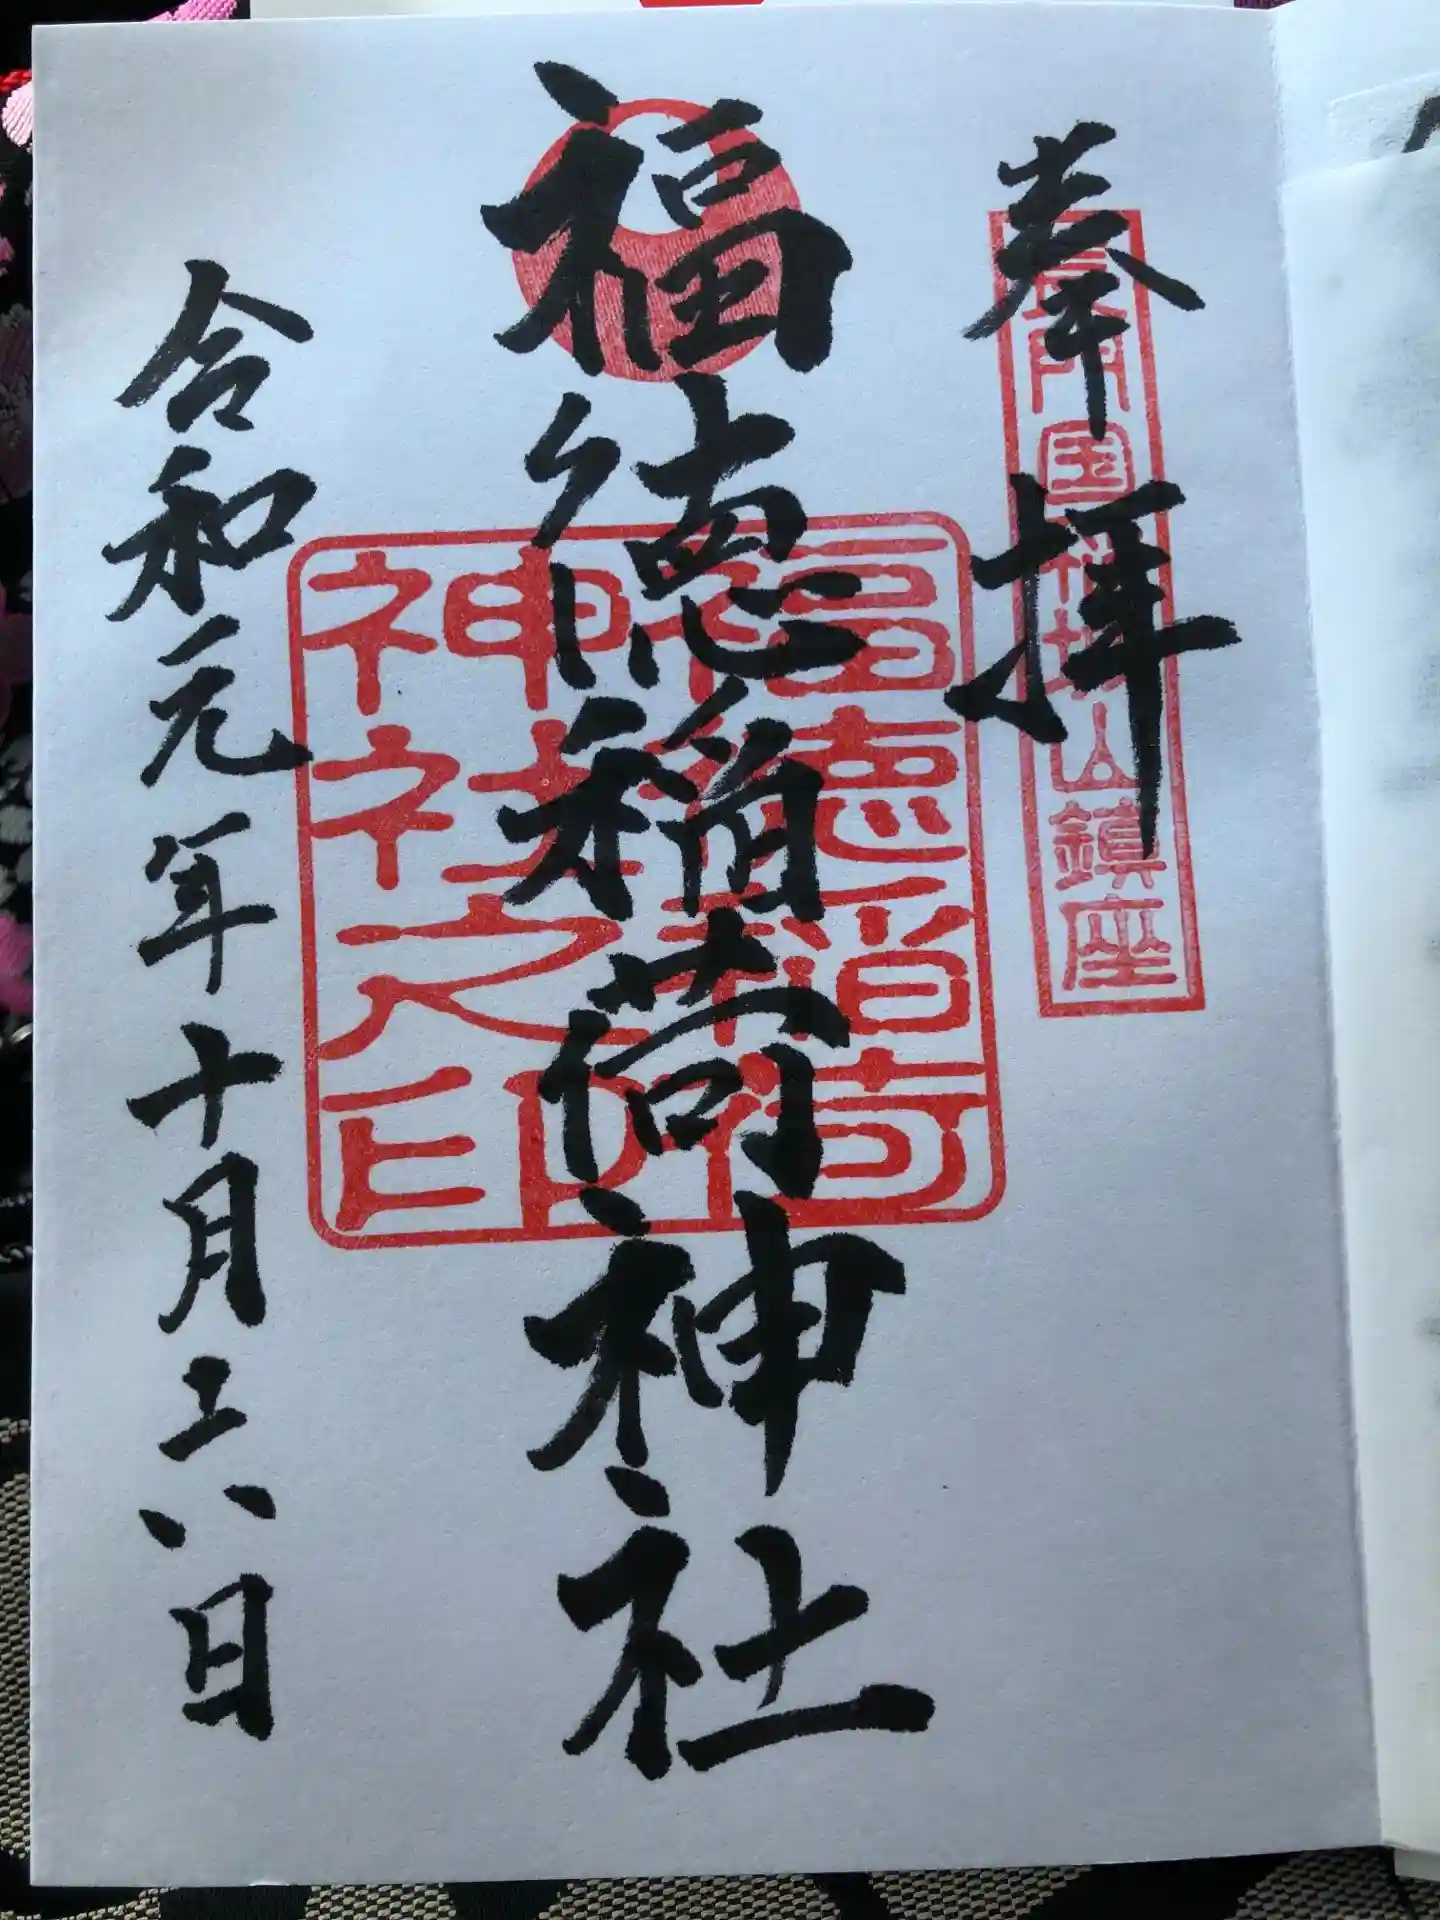 奉拝
長門国
山鎮座
福徳稲荷神社
福徳稲荷
神社之印
令和元年十月二八日